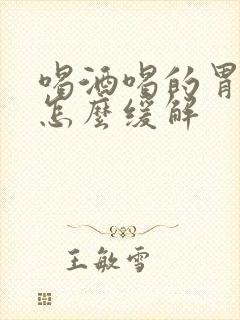 喝酒喝的胃
怎麼缓解
王敏雪